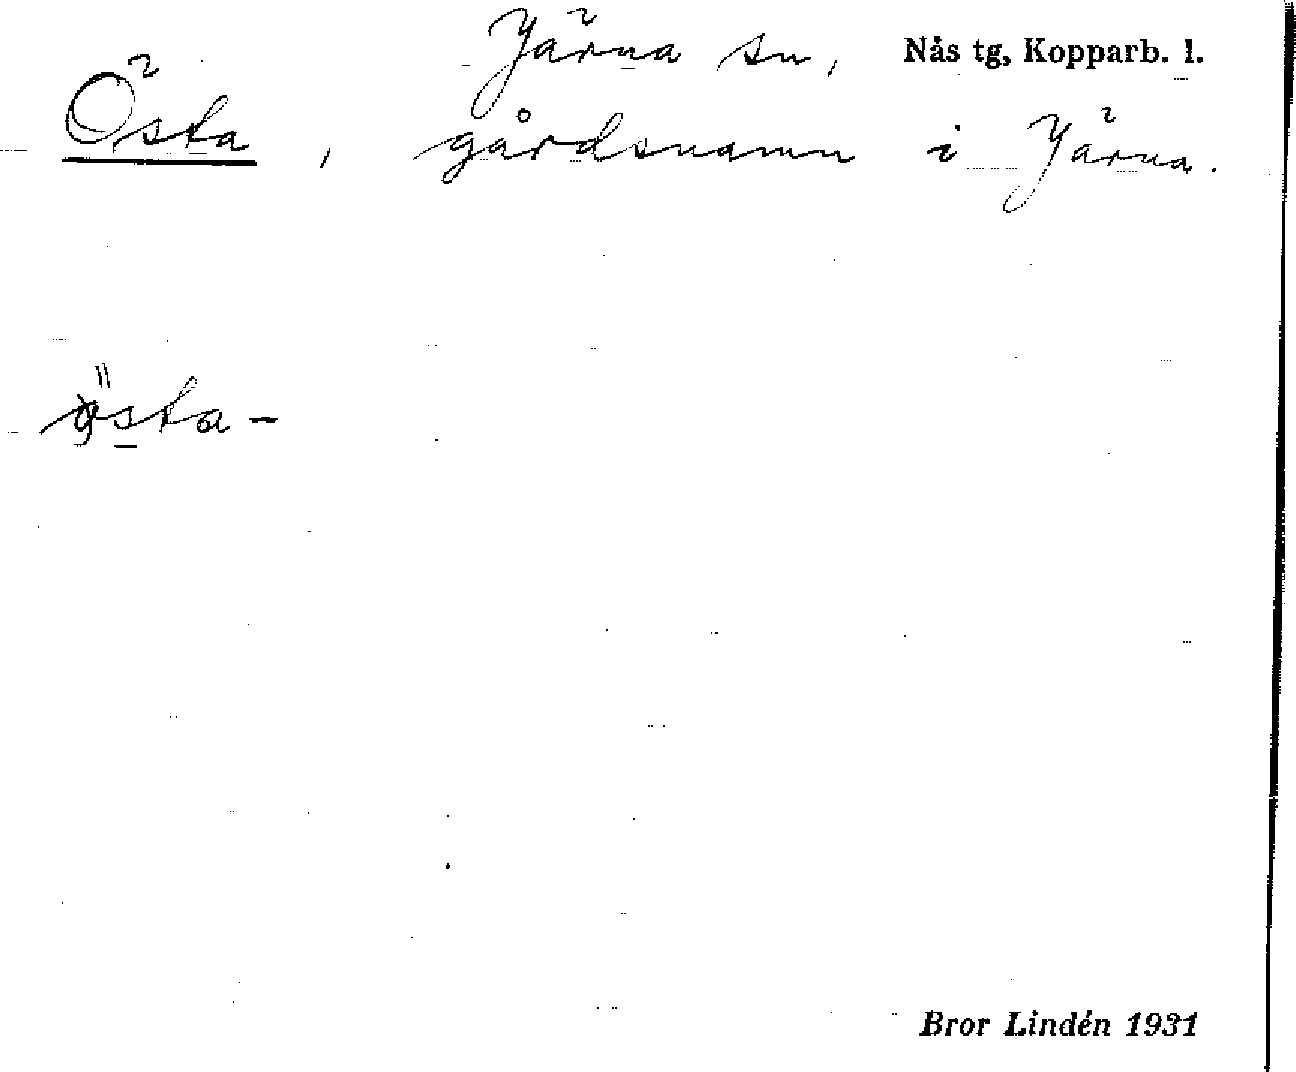 Järna sn, Nås tg, Kopparb. l.
Östa, gårdsnamn i Järna.
östa-
Bror Lindén 1931